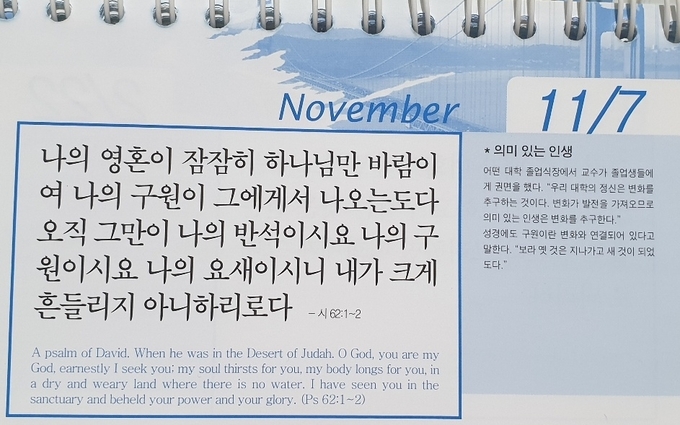 November
11/7
나의 영혼이 잠잠히 하나님만 바람이
여 나의 구원이 그에게서 나오는도다
오직 그만이 나의 반석이시요 나의 구
원이시요 나의 요새이시니 내가 크게
흔들리지 아니하리로다 – 시 62:1~2
A psalm of David. When he was in the Desert of Judah. O God, you are my
God, earnestly I seek you; my soul thirsts for you, my body longs for you, in
a dry and weary land where there is no water. I have seen you in the
sanctuary and beheld your power and your glory. (Ps 62:1~2)
* 의미 있는 인생
어떤 대학 졸업식장에서 교수가 졸업생들에
게 권면을 했다. “우리 대학의 정신은 변화를
추구하는 것이다. 변화가 발전을 가져오므로
의미 있는 인생은 변화를 추구한다.”
성경에도 구원이란 변화와 연결되어 있다고
말한다. “보라 옛 것은 지나가고 새 것이 되었
도다.”